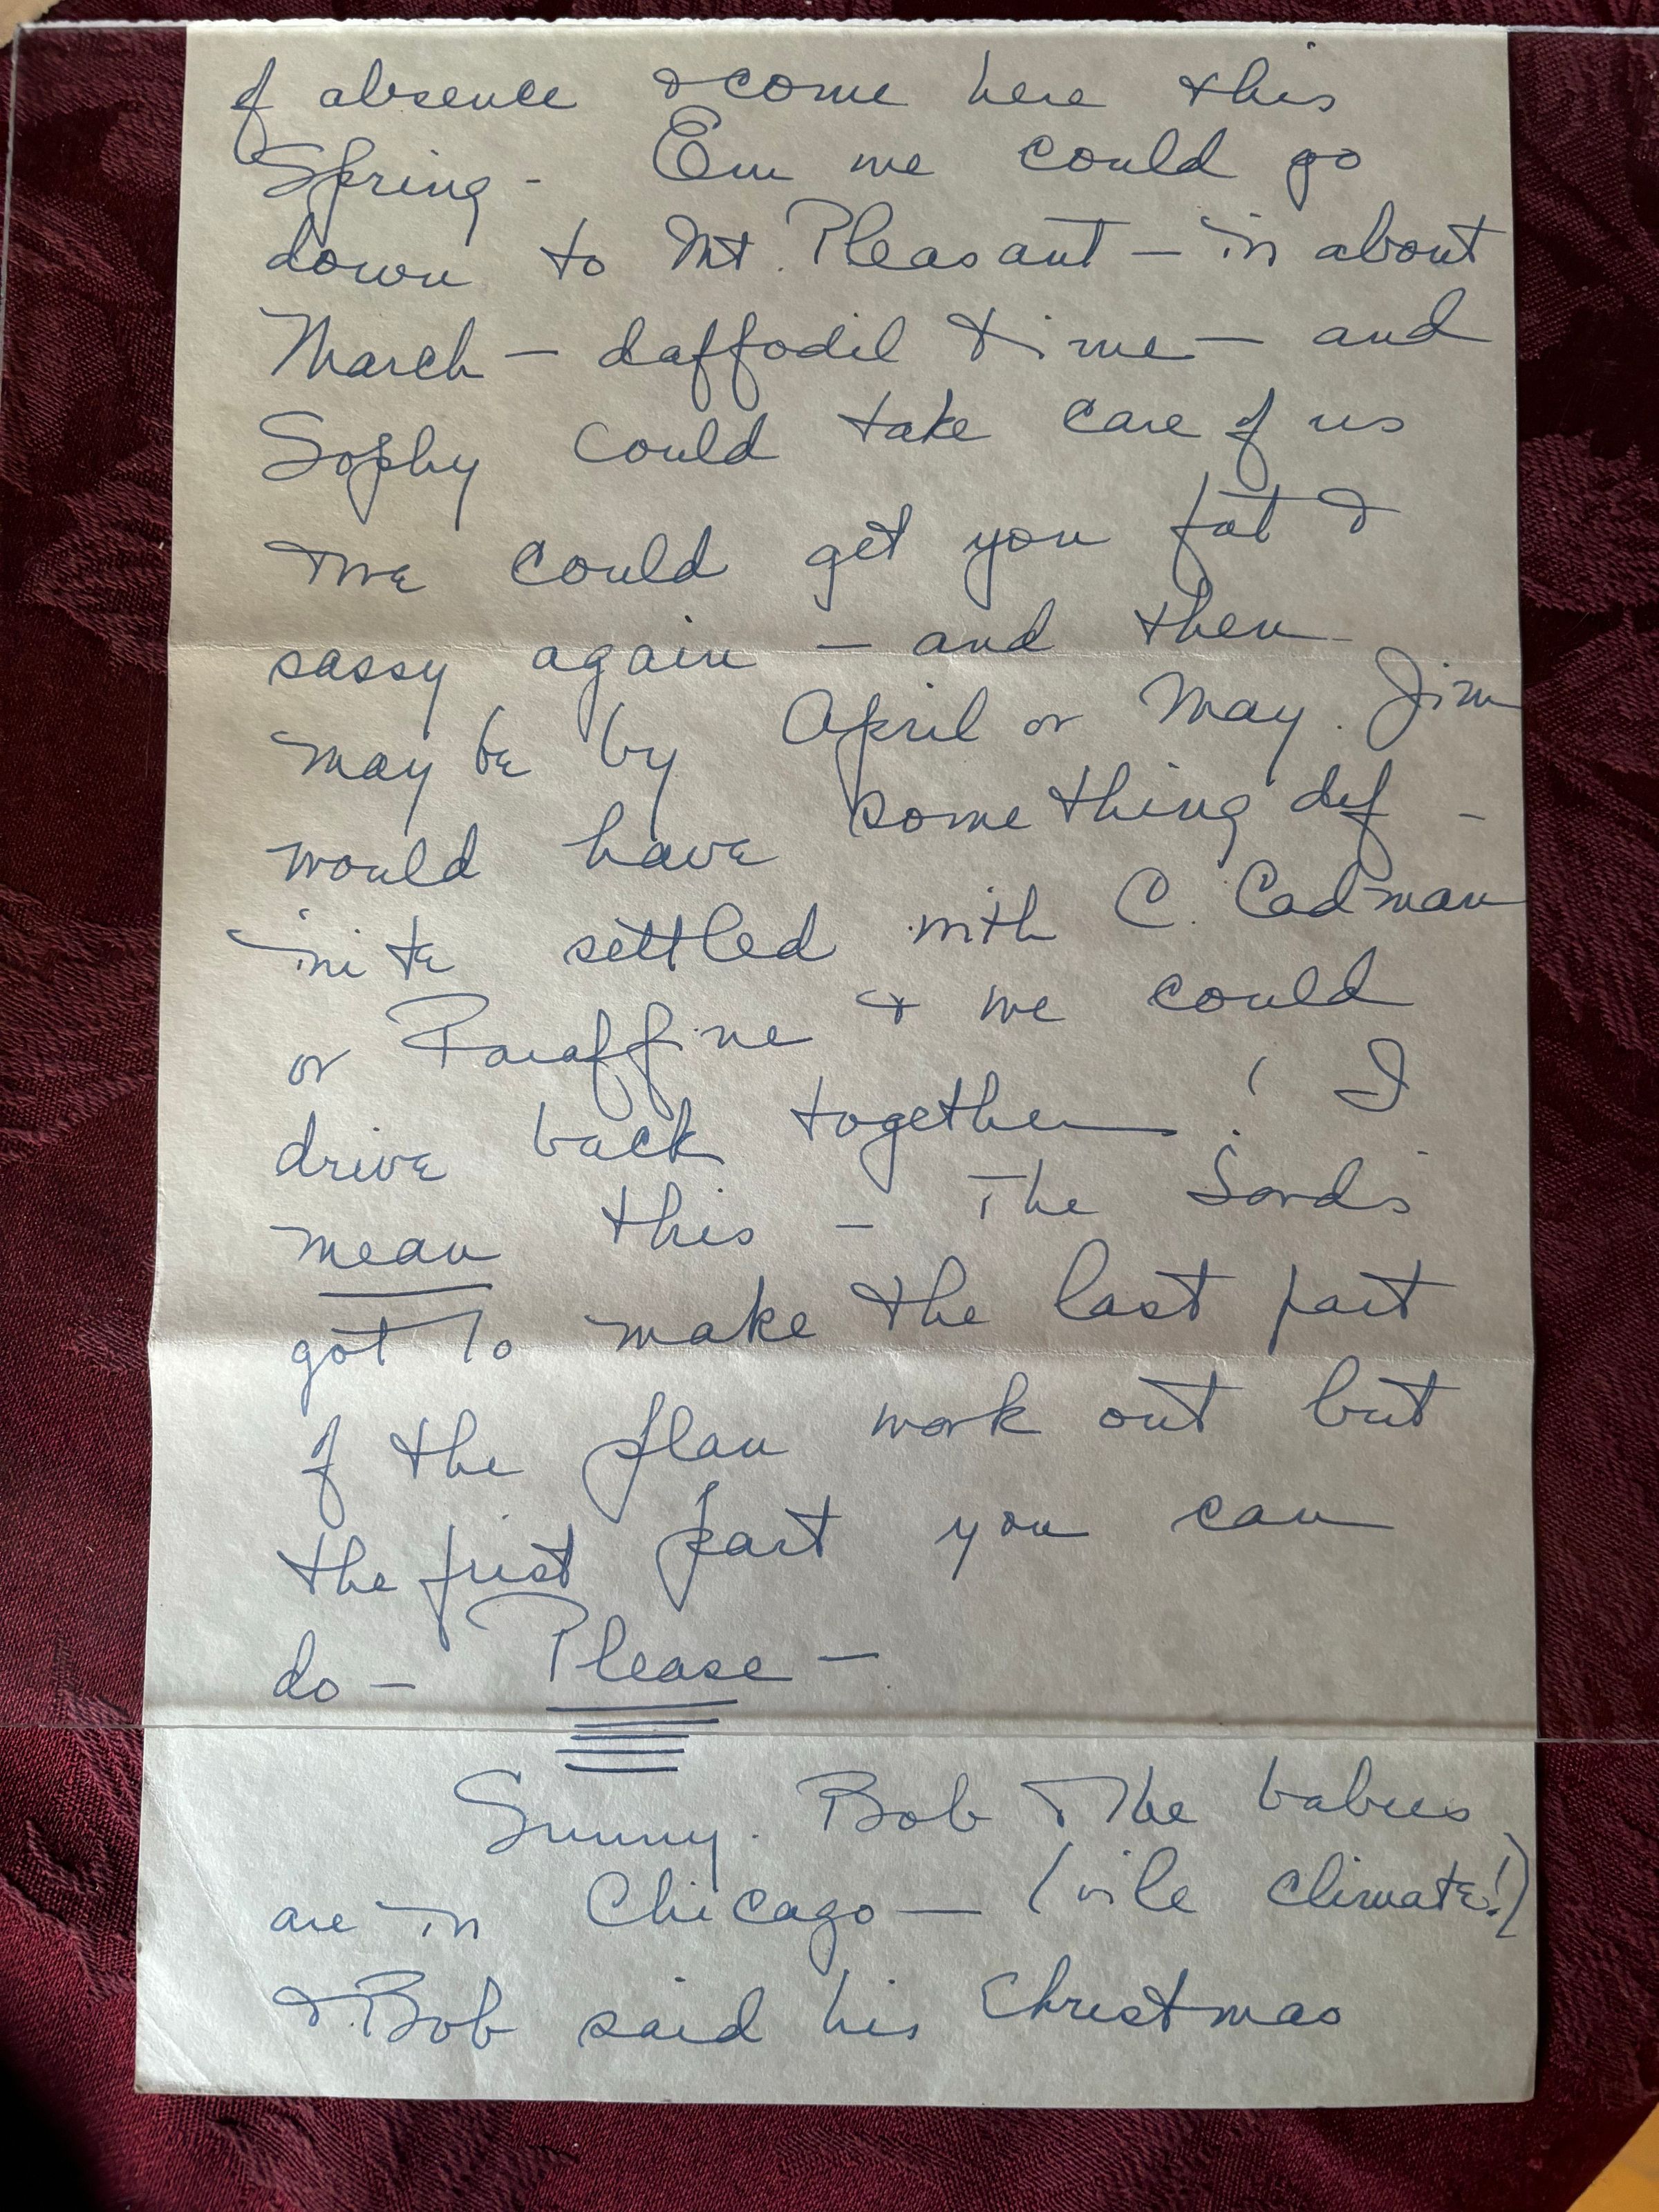 of absence & come here this
Spring - Em we could go
down to Mt. Pleasant — in about
March — daffodil time — and
Sophy could take care of us
& we could get you fat &
sassy again — and then
maybe by April or May. Jim
would have something def -
inite settled with C. Cadman
or Paraffine & we could
drive back together! I
mean this - The Lord's
got to make the last part
of the plan work out but
the first part you can
do - Please -
Sunny. Bob & the babies
are in Chicago — (vile climate!)
& Bob said his Christmas